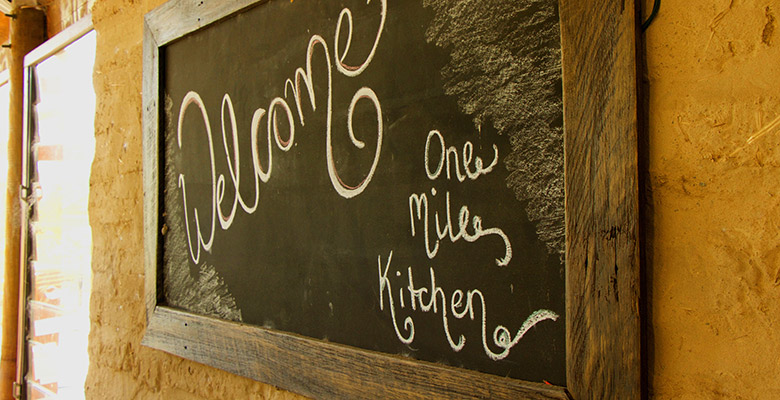 Welcome
One
Mile
Kitchen